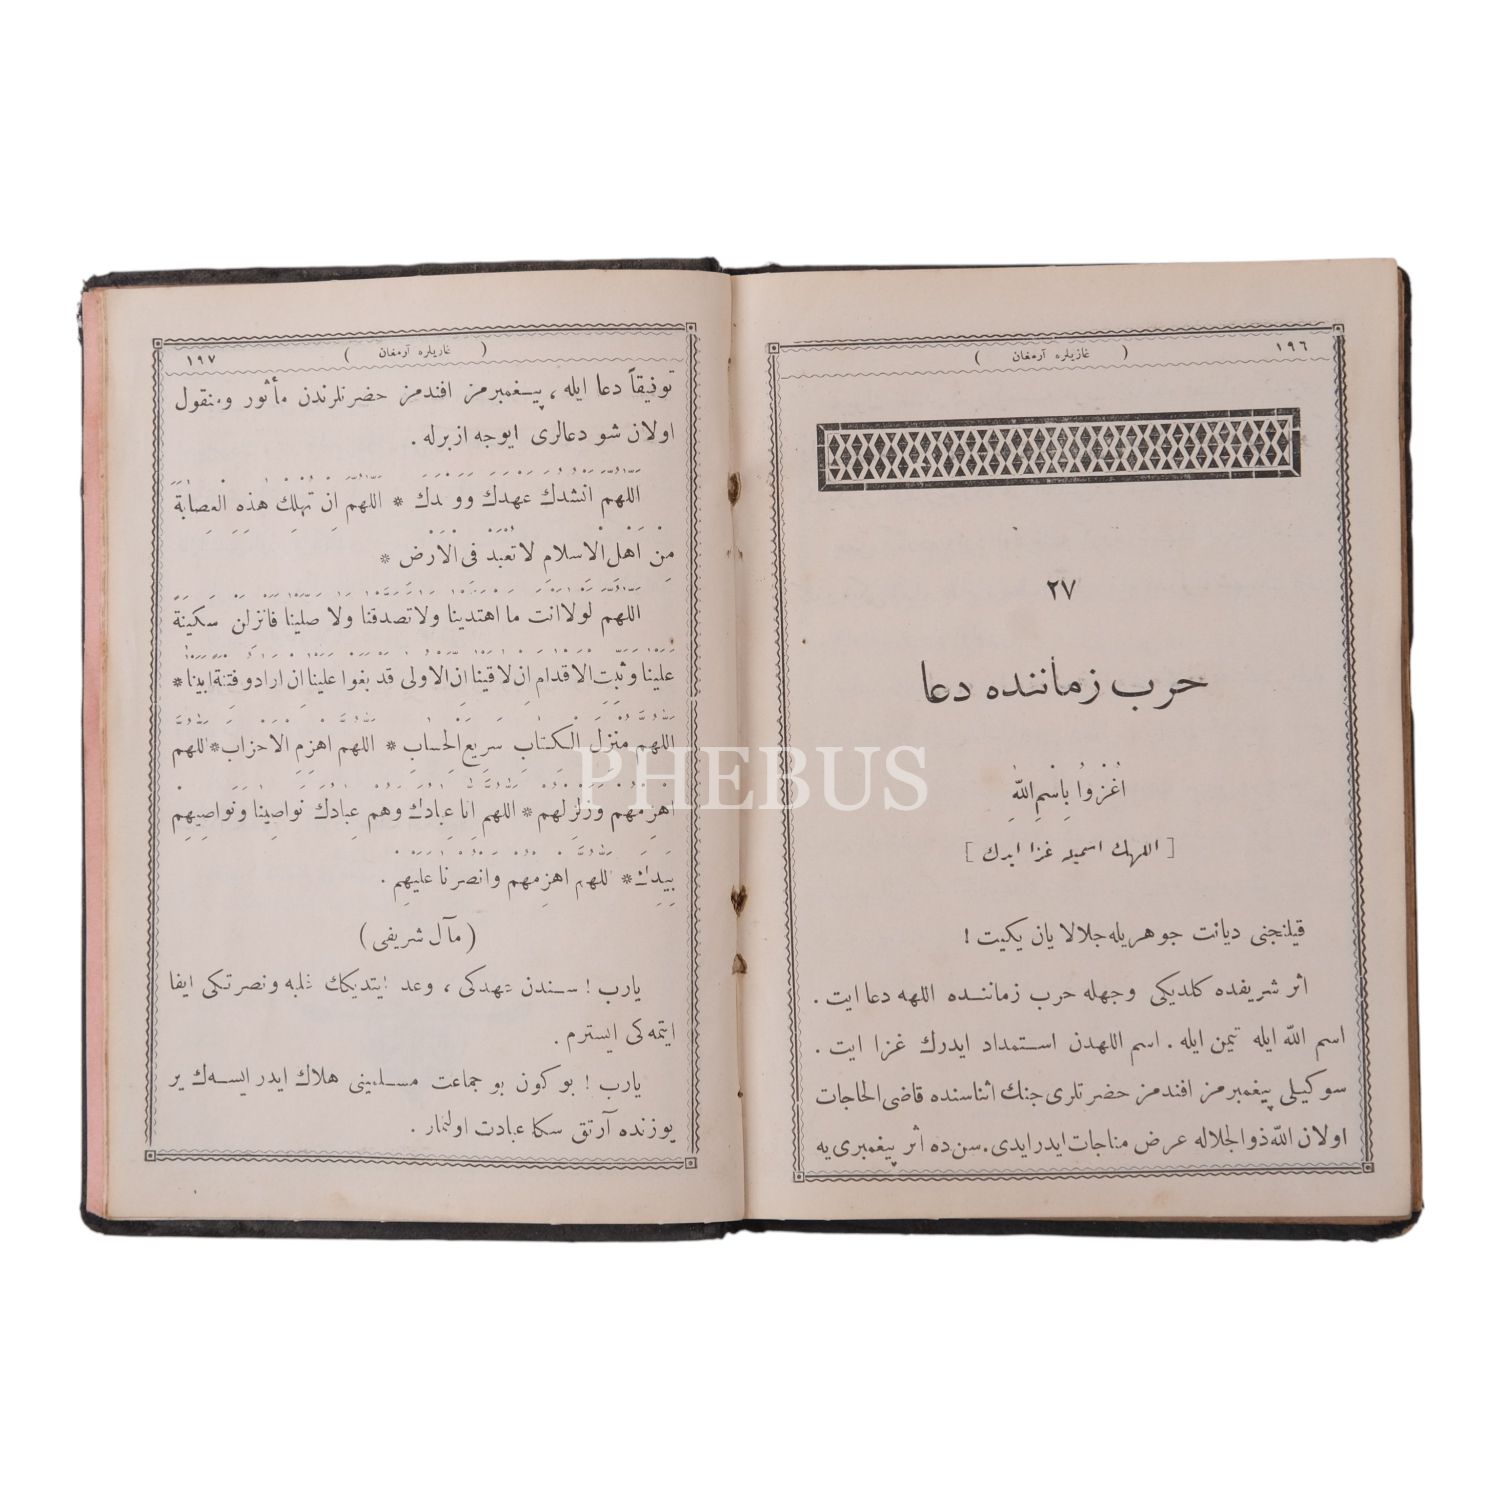 ١٩٦
( غازیلره آرمغان )
٢٧
حرب زماننده دعا
اُغْزُوا بِاسْمِ اللّٰهِ
[ اللهك اسمیله غزا ایدك ]
قیلنجنی دیانت جوهریله جلالایان یكیت !
اثر شریفده كلدیكی وجهله حرب زماننده اللهه دعا ایت .
اسم اللّٰه ایله تیمن ایله . اسم اللهدن استمداد ایدرك غزا ایت .
سوكیلی پیغمبرمز افندمز حضرتلری جنك اثناسنده قاضی الحاجات
اولان اللّٰه ذوالجلاله عرض مناجات ایدرایدی. سن ده اثر پیغمبری یه
١٩٧
( غازیلره آرمغان )
توفیقاً دعا ایله ، پیغمبرمز افندمز حضرتلرندن مأثور ومنقول
اولان شو دعالری ایوجه ازبرله .
اللهم انشدك عهدك ووعدك * اللهم اِنْ تهلِكْ هذِهِ العِصابة
مِنْ اَهْلِ الْاسلامِ لا تُعْبَد فى الْاَرْض *
اللهم لولا انت ما اهتدينا ولا تصدقنا ولا صلينا فانزلن سكينة
علينا وثبِّت الاقدام اِن لاقينا اِن الاولى قد بغوا علينا ان ارادو فتنة ابينا *
اللهم منزل الكتابِ سريع الحِسابِ * اللهم اهزِمِ الاحزاب * اللهم
اهزِمهم وزلزِلهم * اللهم انا عِبادك وهم عِبادك نواصِينا ونواصِيهِم
بِيَدِك * اللهم اهزِمهم وانصرنا عليهِم .
( مآل شریفی )
یارب ! سندن عهدكی ، وعد ایتدیكك غلبه ونصرتكی ایفا
ایتمه كی ایسترم .
یارب ! بو كون بو جماعت مسلمینی هلاك ایدر ایسه ك یر
یوزنده آرتق سكا عبادت اولنماز .
PHEBUS